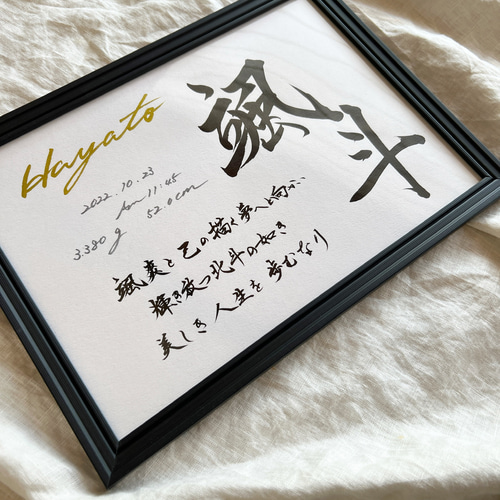 Hayato
颯斗
2022.10.23
Am 11:45
3.380g 52.0cm
颯爽と己の描く夢へと向かい
輝き放つ北斗の如き
美しき人生を歩むなり